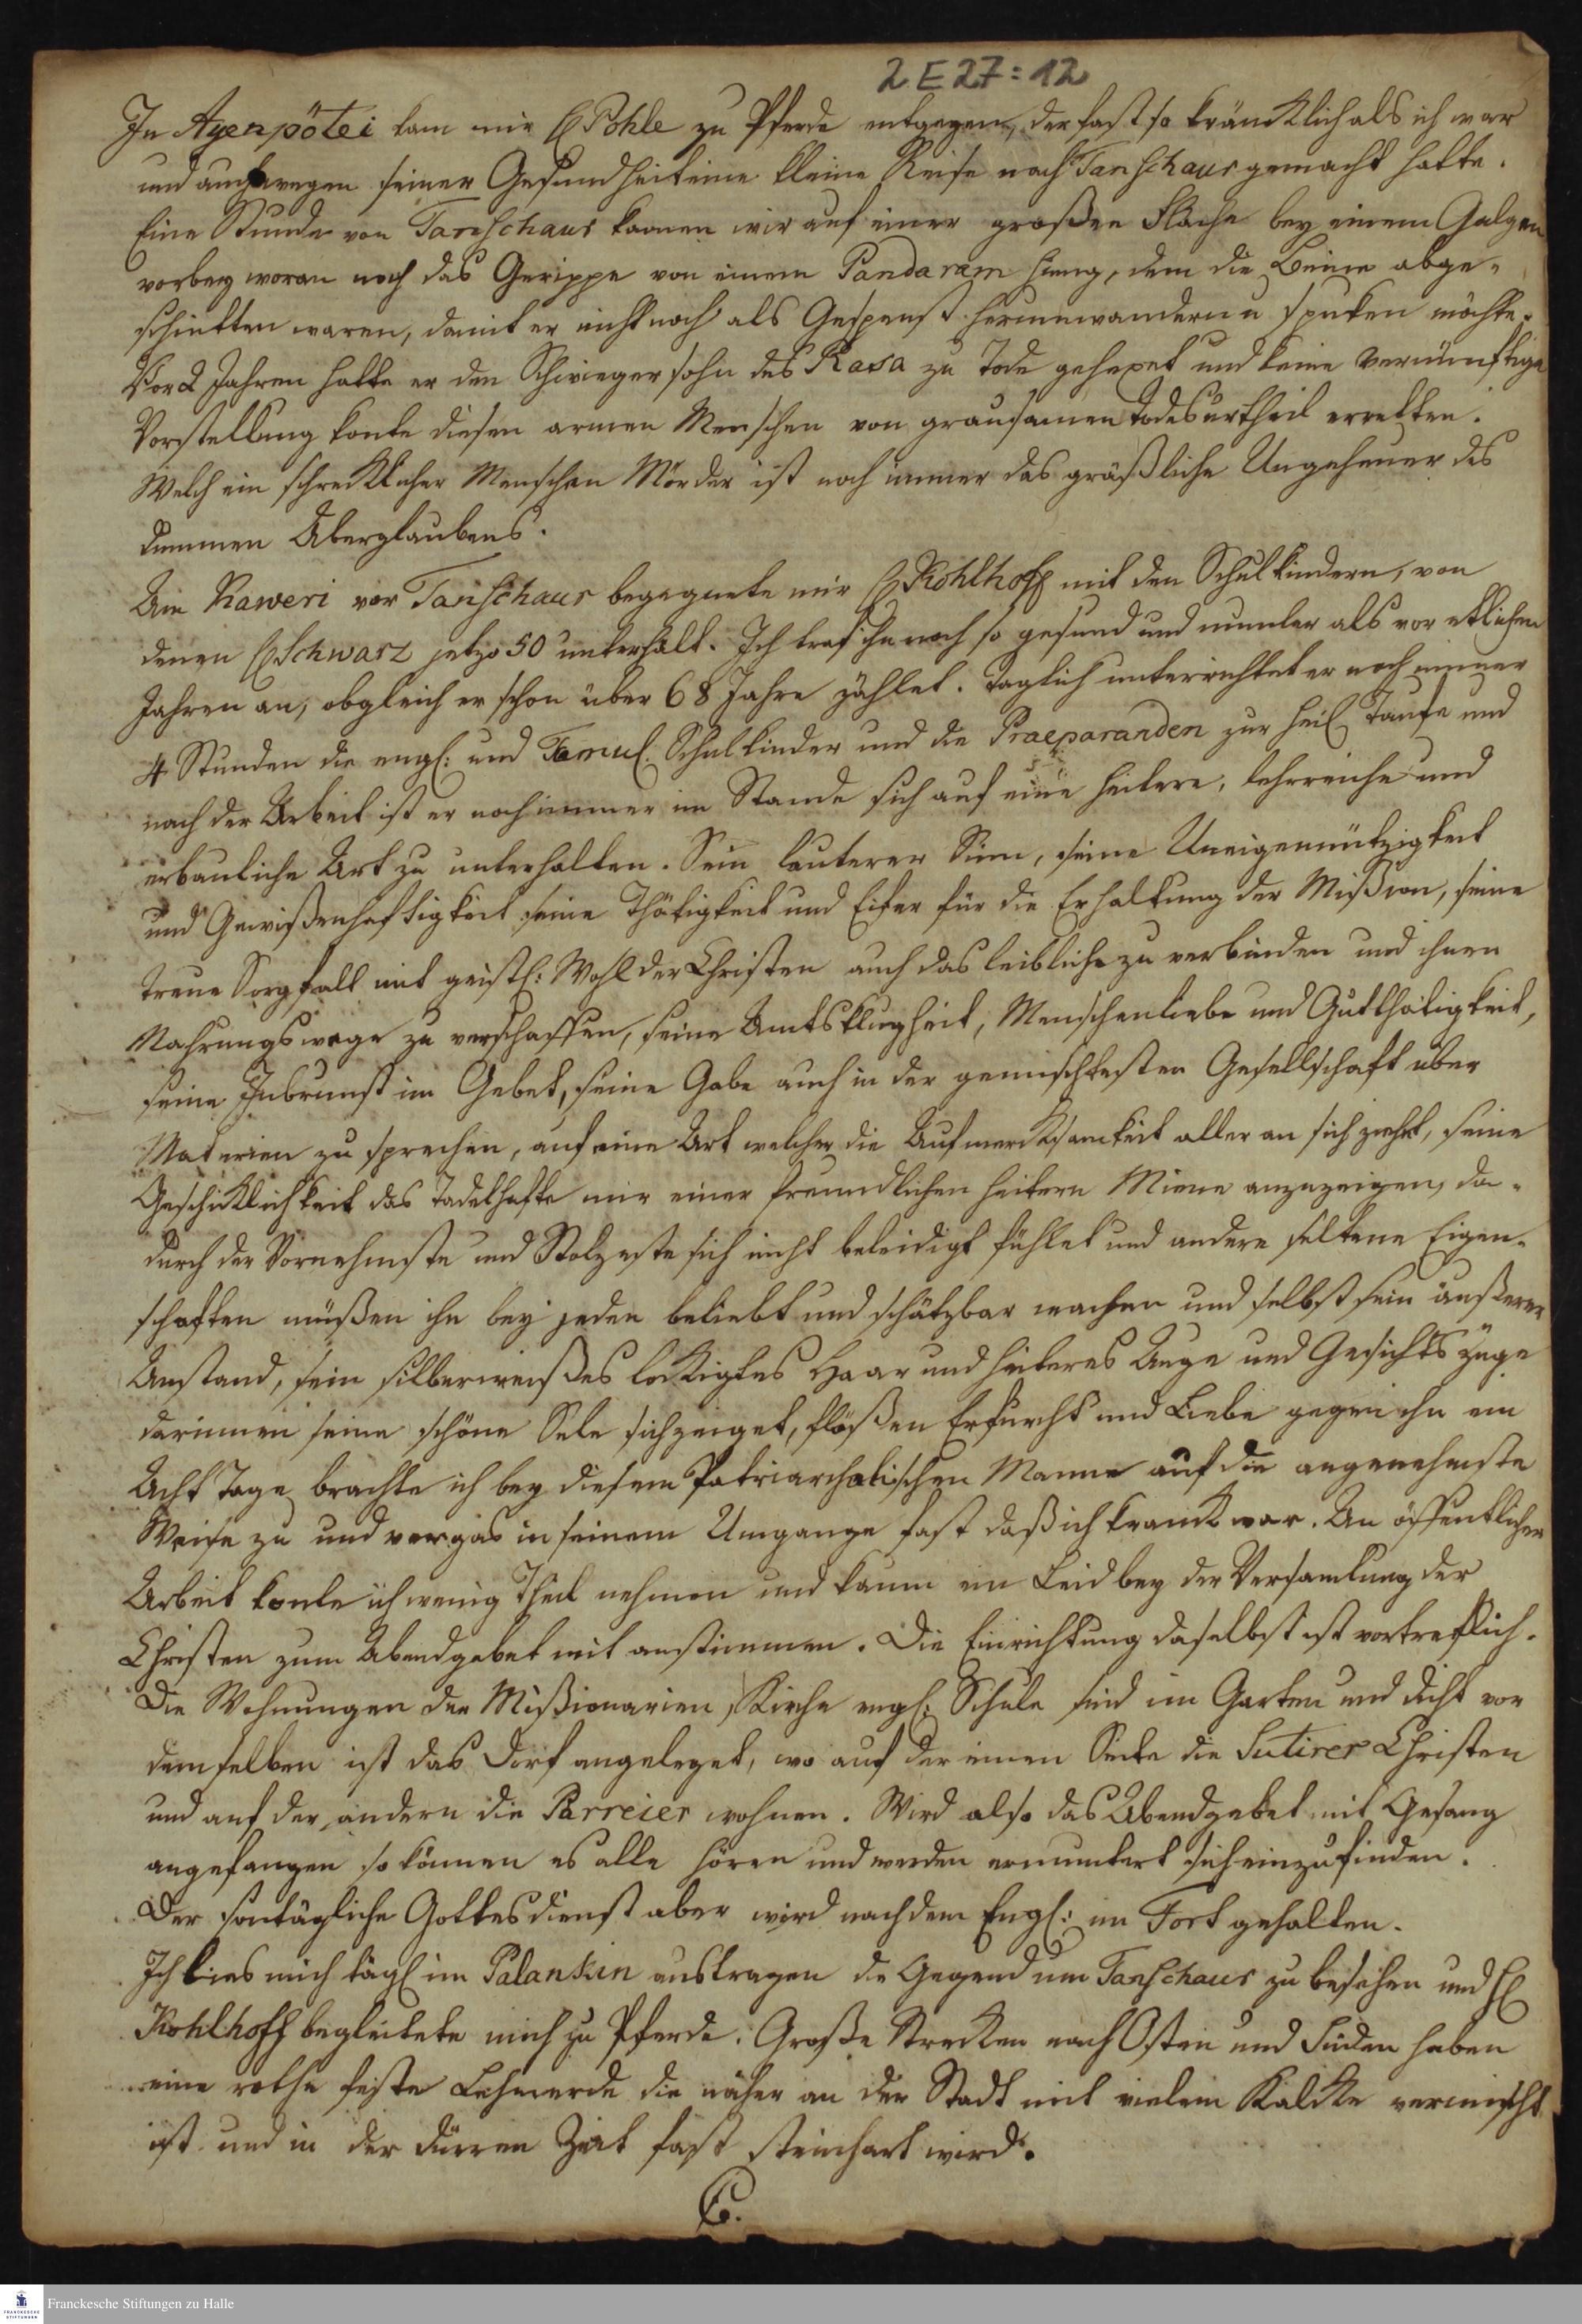 2 E 27 : 12
In Ayenpötei kam mir H Pohle zu Pferde entgegen, der fast so kräncklich als ich war
und auch wegen seiner Gesundheit eine kleine Reise nach Tanschaur gemacht hatte.
Eine Stunde von Tanschaur kamen wir auf einer großen Fläche bey einem Galgen
vorbey woran noch das Gerippe von einem Pandaram hieng, dem die Beine abge-
schnitten waren, damit er nicht noch als Gespenst herumwandern u spuken möchte.
Vor 2 Jahren hatte er den Schwiegersohn des Rasa zu Tode gehexet und keine vernünftige
Vorstellung konte diesen armen Menschen von grausamen Todesurtheil erretten.
Welch ein schrecklicher Menschen Mörder ist noch immer das gräßliche Ungeheuer des
dummen Aberglaubens.
Am Kaweri vor Tanschaur begegnete mir H Kohlhoff mit den Schulkindern, von
denen H Schwarz jetzo 50 unterhält. Ich traf ihn noch so gesund und munter als vor etlichen
Jahren an, obgleich er schon über 68 Jahre zählet. Taglich unterrichtet er noch immer
4 Stunden die engl: und Tamul: Schulkinder und die Praeparanden zur heil Taufe und
nach der Arbeit ist er noch immer im Stande sich auf eine heitere, lehrreiche und
erbauliche Art zu unterhalten. Sein lauterer Sinn, seine Uneigennützigkeit
und Gewißenhaftigkeit seine Thätigkeit und Eifer für die Erhaltung der Mißion, seine
treue Sorgfalt mit geistl: Wohl der Christen auch das leibliche zu verbinden und ihnen
Nahrungswege zu verschaffen, seine Amtsklugheit, Menschenliebe und Gutthätigkeit,
seine Inbrunst im Gebet, seine Gabe auch in der gemischtesten Gesellschaft über
Materien zu sprechen, auf eine Art welche die Aufmercksamkeit aller an sich ziehet, seine
Geschicklichkeit das Tadelhafte mir einer freundlichen heitern Miene anzuzeigen, da-
durch der Vornehmste und Stolzeste sich nicht beleidigt fühlet und andere seltene Eigen-
schaften müßen ihn bey jeden beliebt und schätzbar machen und selbst sein äußerer
Anstand, sein silberweißes lockigtes Haar und heiteres Auge und Gesichtszüge
darinnen seine schöne Sele sich zeiget, flößen Erfurcht und Liebe gegen ihn ein
Acht Tage brachte ich bey diesem Patriarchalischen Manne auf die angenehmste
Weise zu und vergas in seinem Umgange fast daß ich kranck war. An öffentlicher
Arbeit konte ich wenig Theil nehmen und kaum ein Leid bey der Versamlung der
Christen zum Abendgebet mit anstimmen. Die Einrichtung daselbst ist vortreflich.
Die Wohnungen der Mißionarien, Kirche engl: Schule sind im Garten und dicht vor
demselben ist das Dorf angeleget, wo auf der einen Seite die Sutirer Christen
und auf der andern die Parreier wohnen. Wird also das Abendgebet mit Gesang
angefangen so können es alle hören und werden ermuntert sich einzufinden.
Der sontägliche Gottesdienst aber wird nach dem Engl: im Fort gehalten.
Ich lies mich tägl im Palankin austragen die Gegend um Tanschaur zu besehen und H
Kohlhoff begleitete mich zu Pferde. Große Strecken nach Osten und Süden haben
eine rothe feste Lehmerde die näher an der Stadt mit vielem Kalcke vermischt
ist und in der dürren Zeit fast steinhart wird.
Franckesche Stiftungen zu Halle